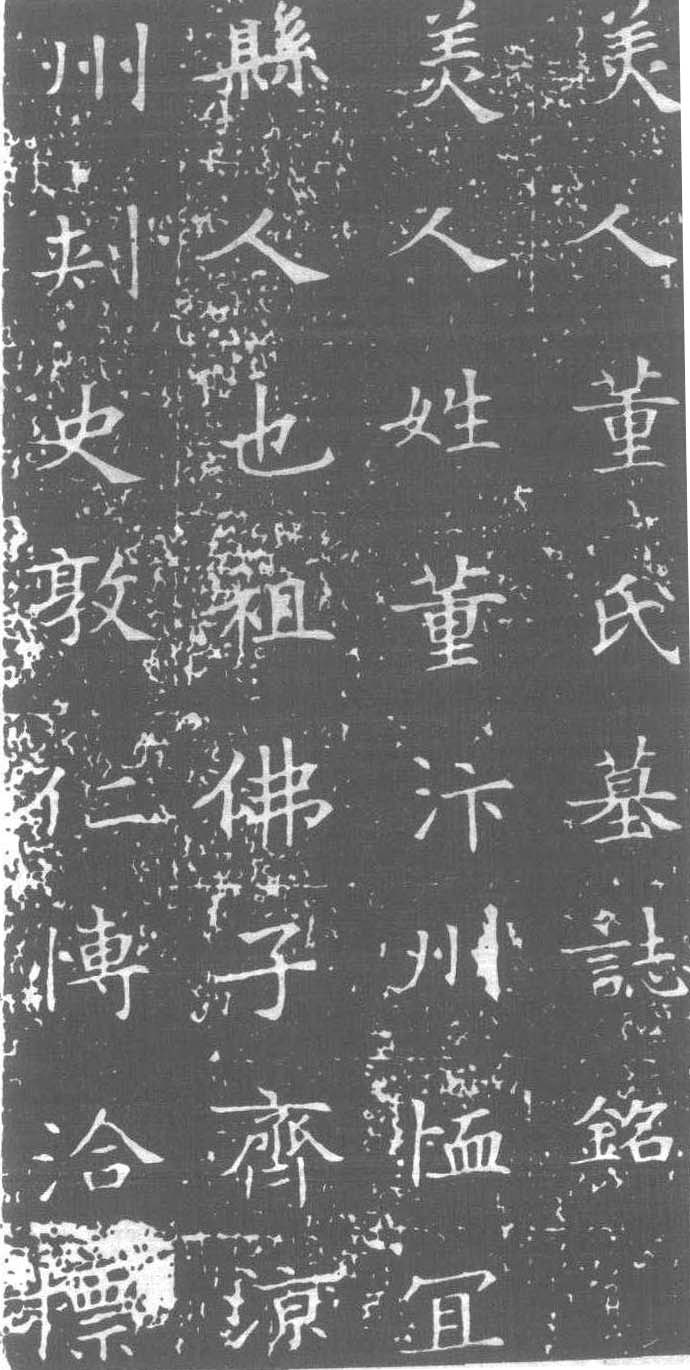 美人董氏墓誌銘
美人姓董汴州恤冝
縣人也祖佛子齊涼
州刾史敦仁慱洽摽